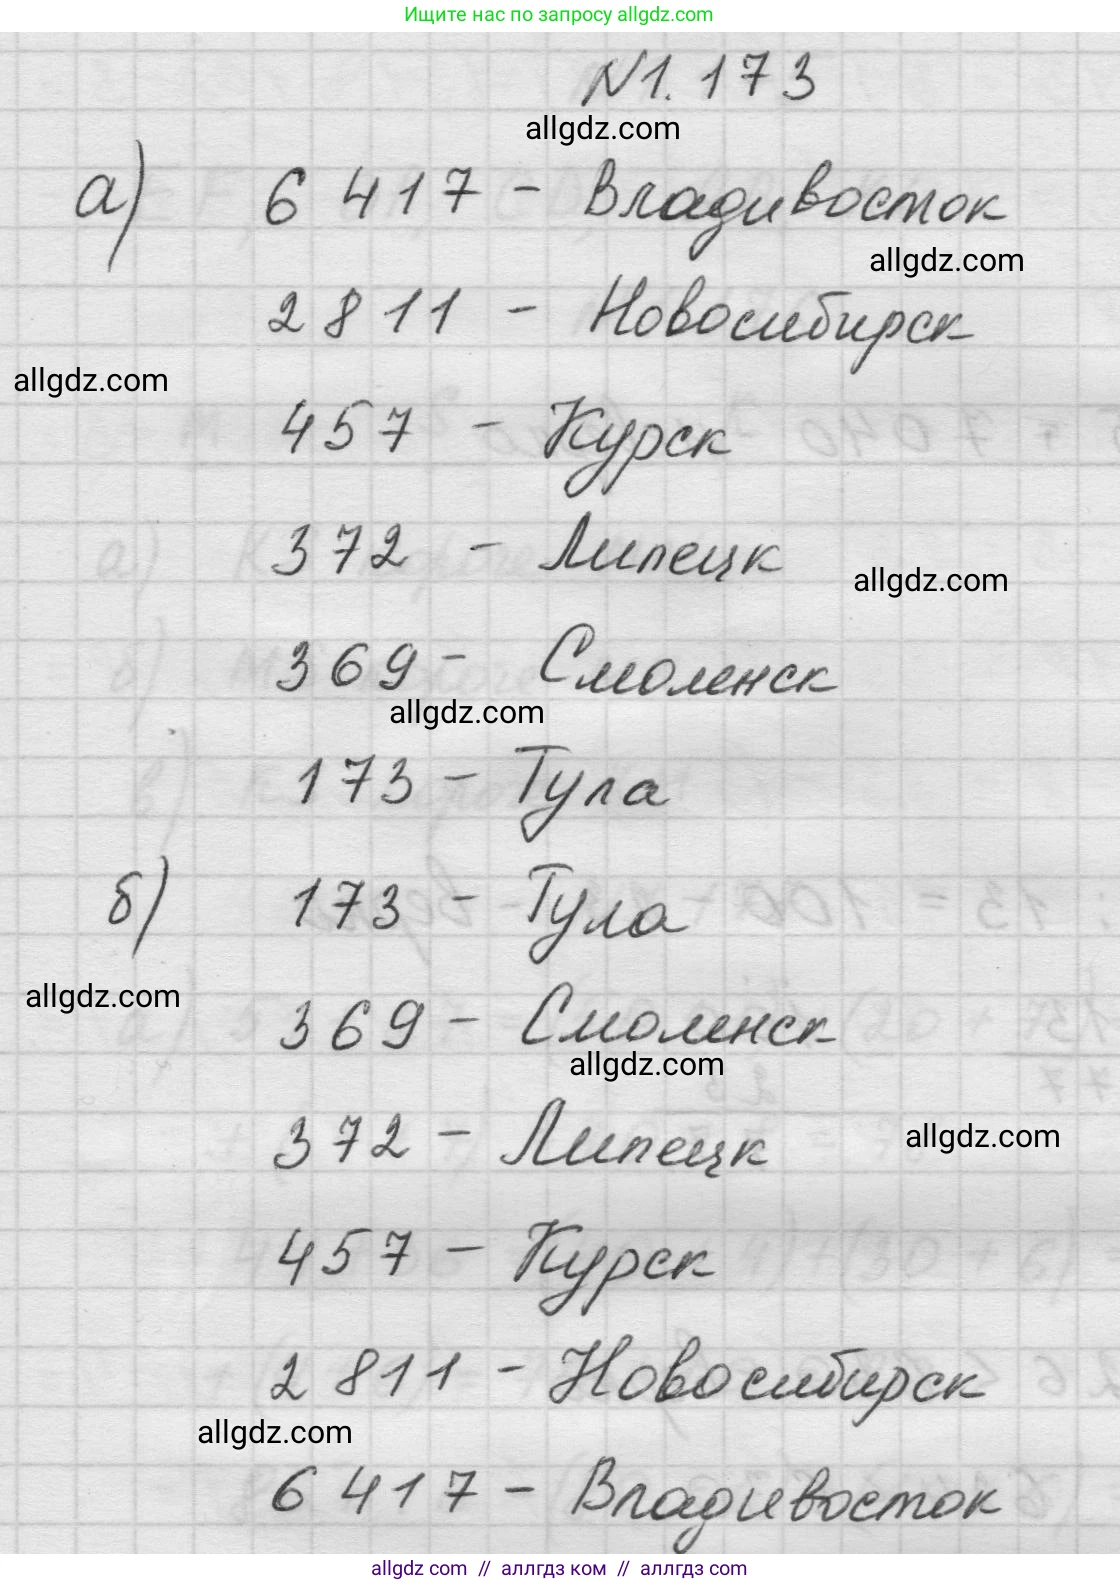 Ищите нас по запросу allgdz.com
N1.173
allgdz.com
а) 6 417 - Владивосток
allgdz.com
2 811 - Новосибирск
allgdz.com
457 - Курск
372 - Липецк
allgdz.com
369 - Смоленск
allgdz.com
173 - Тула
б) 173 - Тула
allgdz.com
369 - Смоленск
allgdz.com
372 - Липецк
allgdz.com
457 - Курск
2 811 - Новосибирск
allgdz.com
6 417 - Владивосток
allgdz com // аллгдз ком // аллгдз com